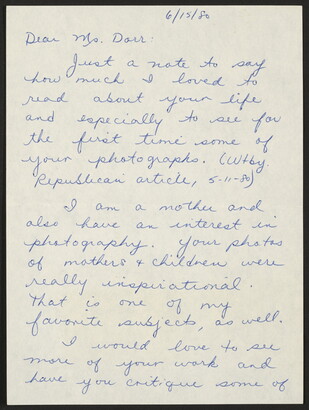 6/15/80
Dear Ms. Dorr:
Just a note to say
how much I loved to
read about your life
and especially to see for
the first time some of
your photographs. (Wtby.
Republican article, 5-11-80)
I am a mother and
also have an interest in
photography. Your photos
of mothers & children were
really inspirational.
That is one of my
favorite subjects, as well.
I would love to see
more of your work and
have you critique some of